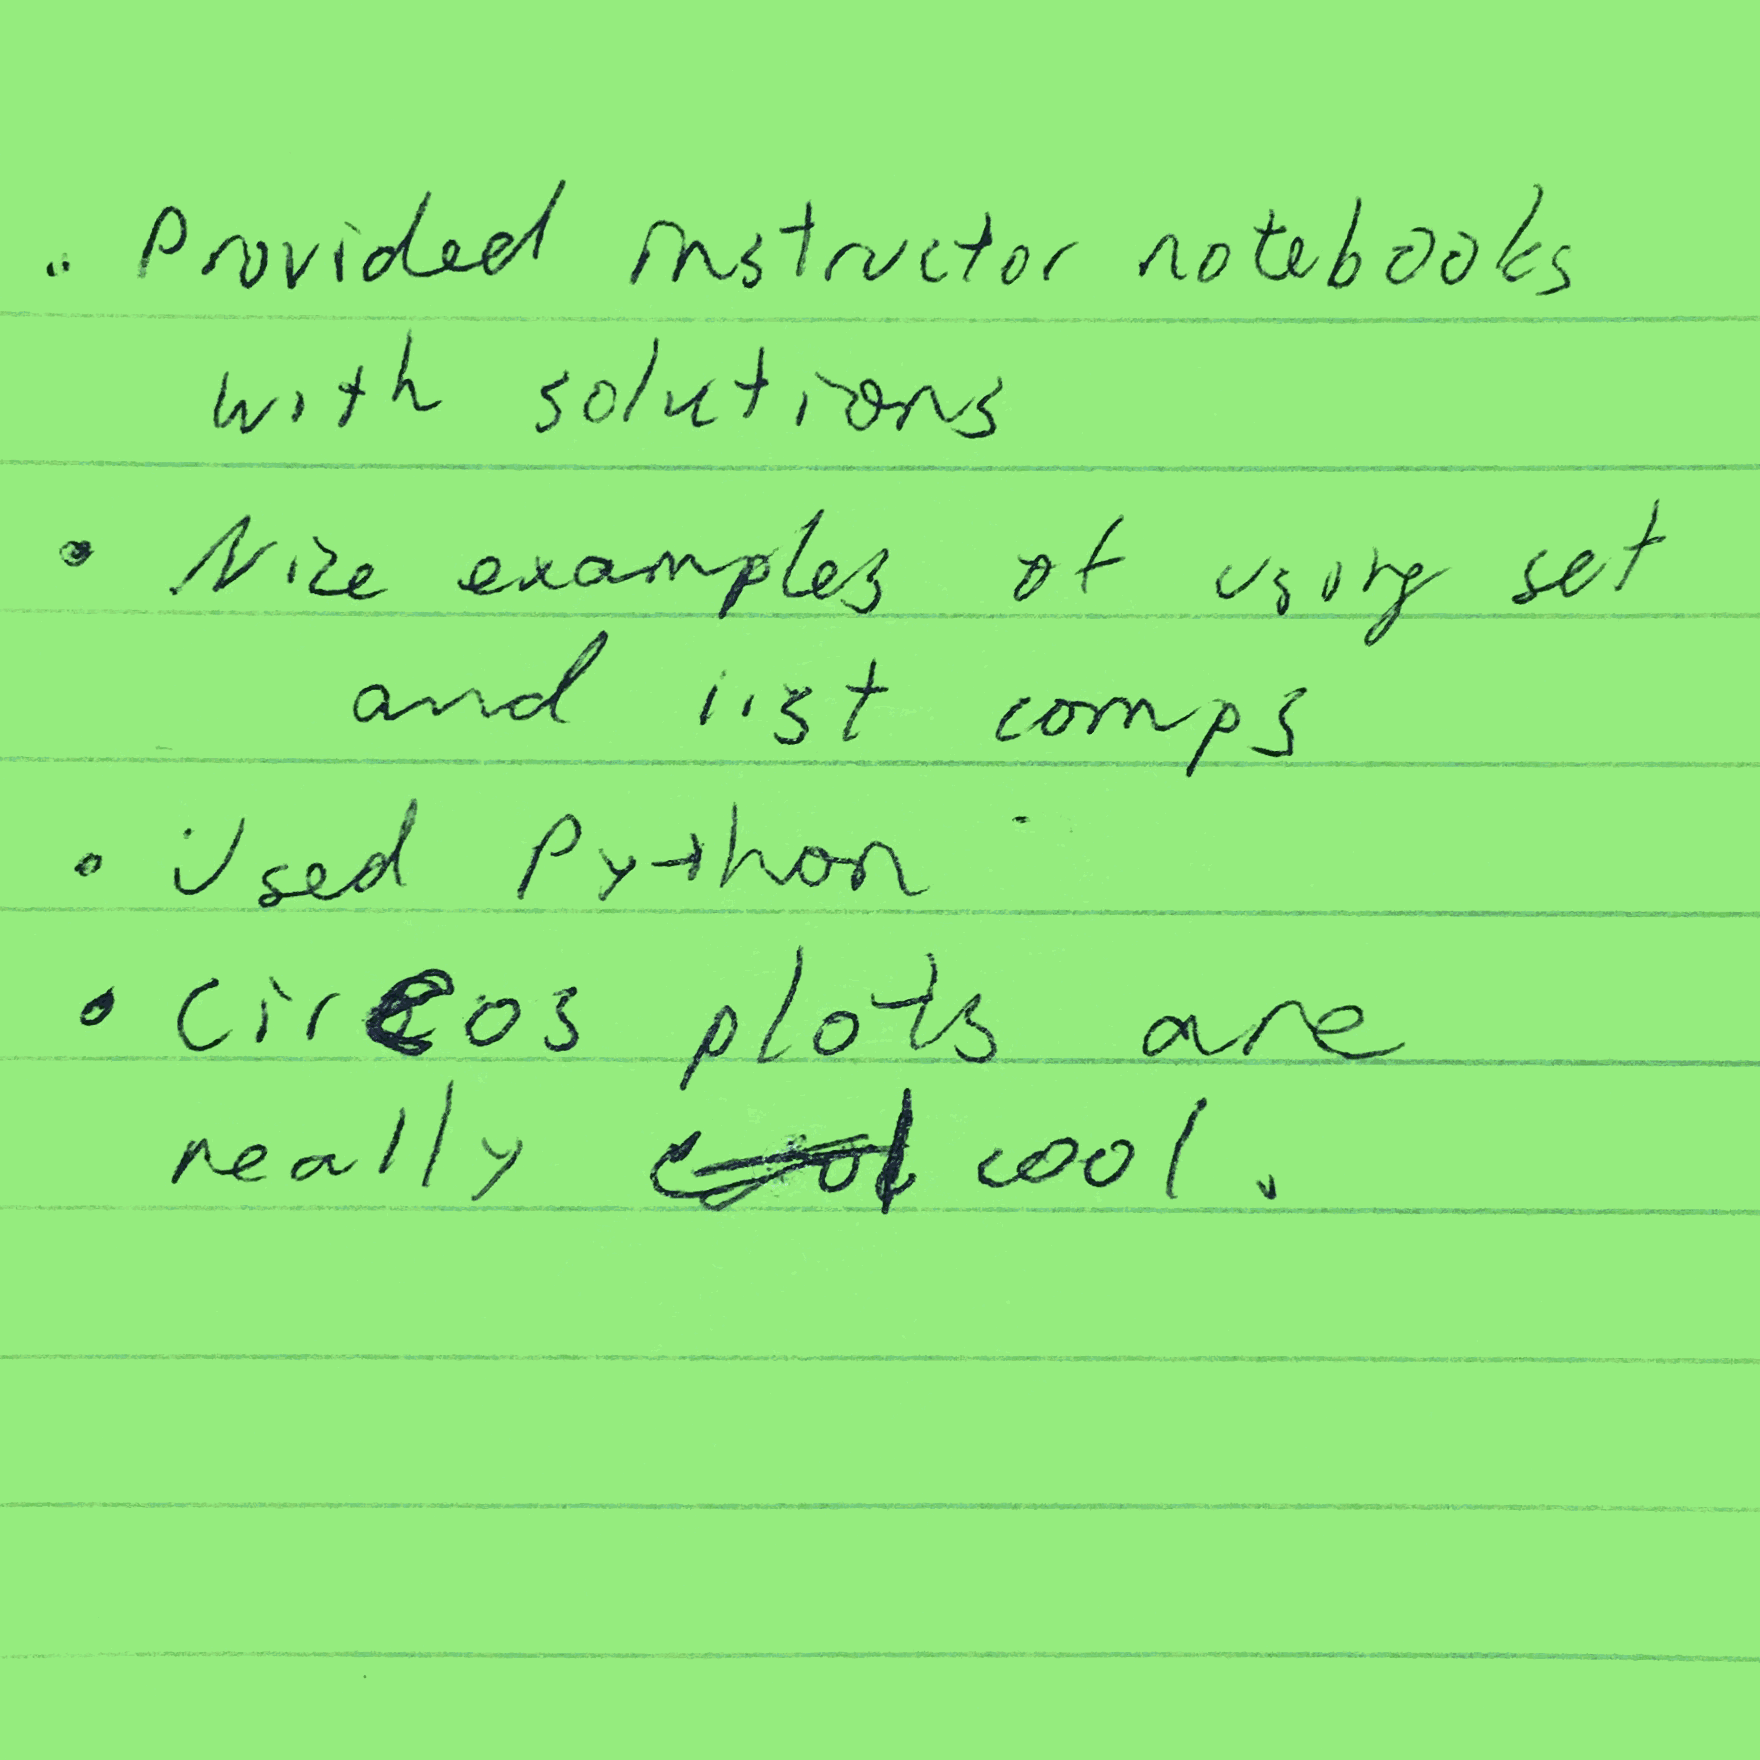 • Provided instructor notebooks
with solutions
• Nice examples of using set
and list comps
• Used Python
• Circos plots are
really cool.